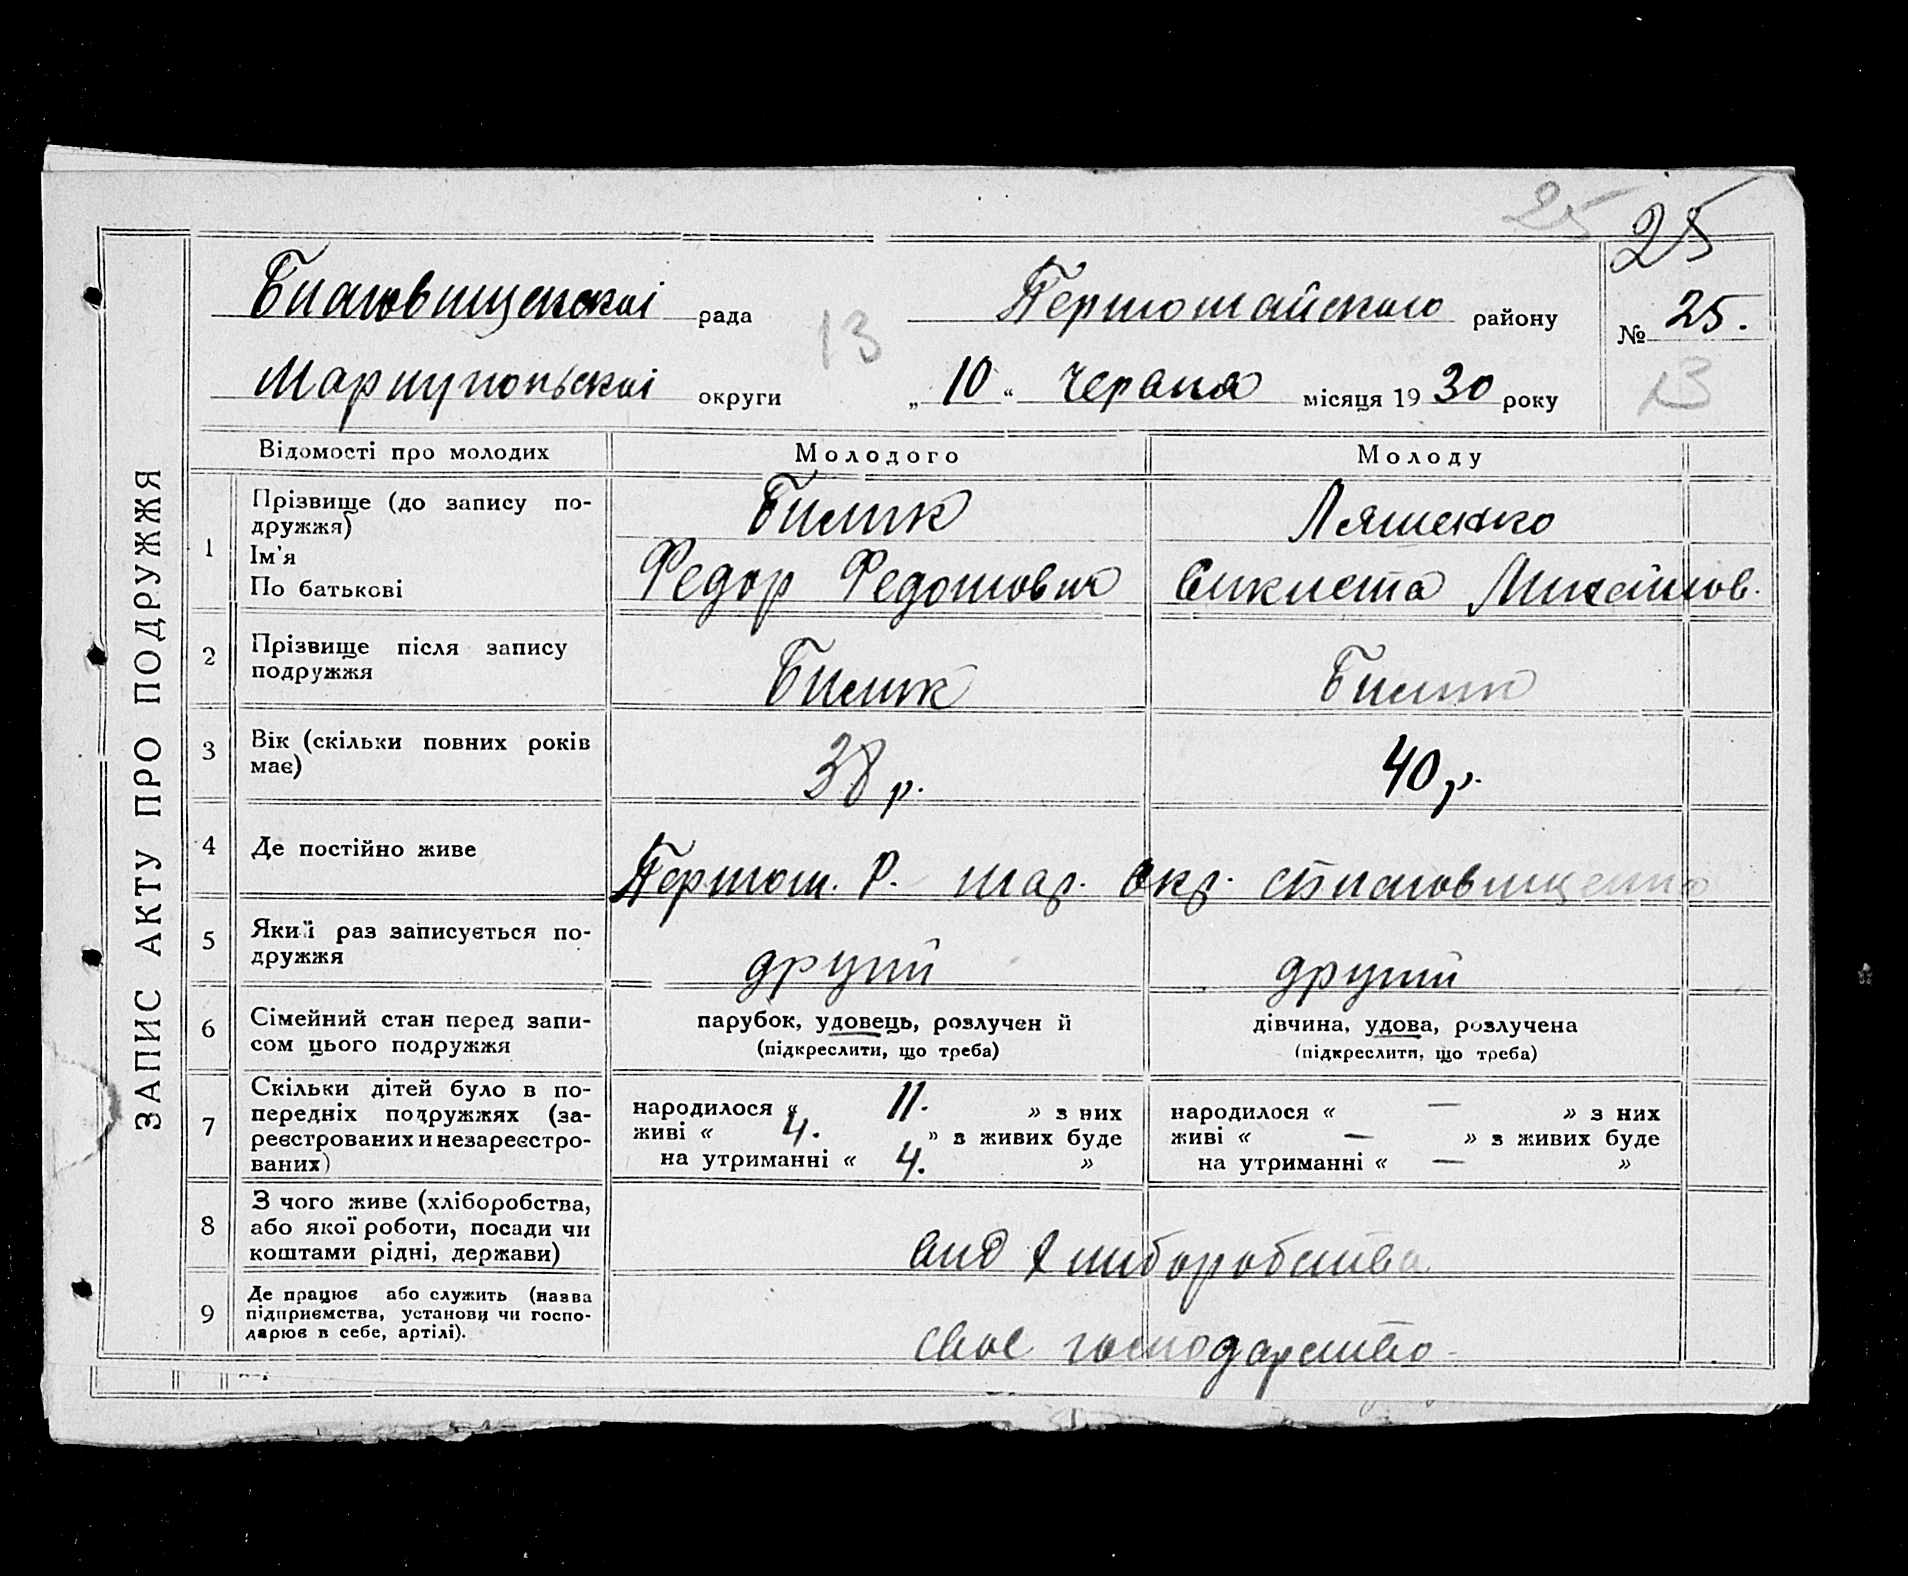 25 25
Благовищенскої рада Першомайського району № 25.
13
Мариупольскої округи „ 10 “ червня місяця 19 30 року
13
ЗАПИС АКТУ ПРО ПОДРУЖЖЯ
Відомості про молодих Молодого Молоду
1 Прізвище (до запису по-
дружжя) Билик Ляшенко
Ім'я
По батькові Федор Федотович Михайлов.
2 Прізвище після запису
подружжя Билик Билик
3 Вік (скільки повних років
має) 38 р. 40 р.
4 Де постійно живе Першом. Р. мар. окр. Благовищенка
5 Який раз записується по-
дружжя другий другий
6 Сімейний стан перед запи-
сом цього подружжя
парубок, удовець, розлучен й
(підкреслити, що треба)
дівчина, удова, розлучена
(підкреслити, що треба)
7 Скільки дітей було в по-
передніх подружжях (за-
реєстрованих и незареєстро-
ваних)
народилося « 11. » з них
живі « 4. » з живих буде
на утриманні « 4. »
народилося « — » з них
живі « — » з живих буде
на утриманні « — »
8 З чого живе (хліборобства,
або якої роботи, посади чи
коштами рідні, держави) вид хлиборобства
9 Де працює або служить (назва
підприємства, установи чи госпо-
дарює в себе, артілі). своє господарство